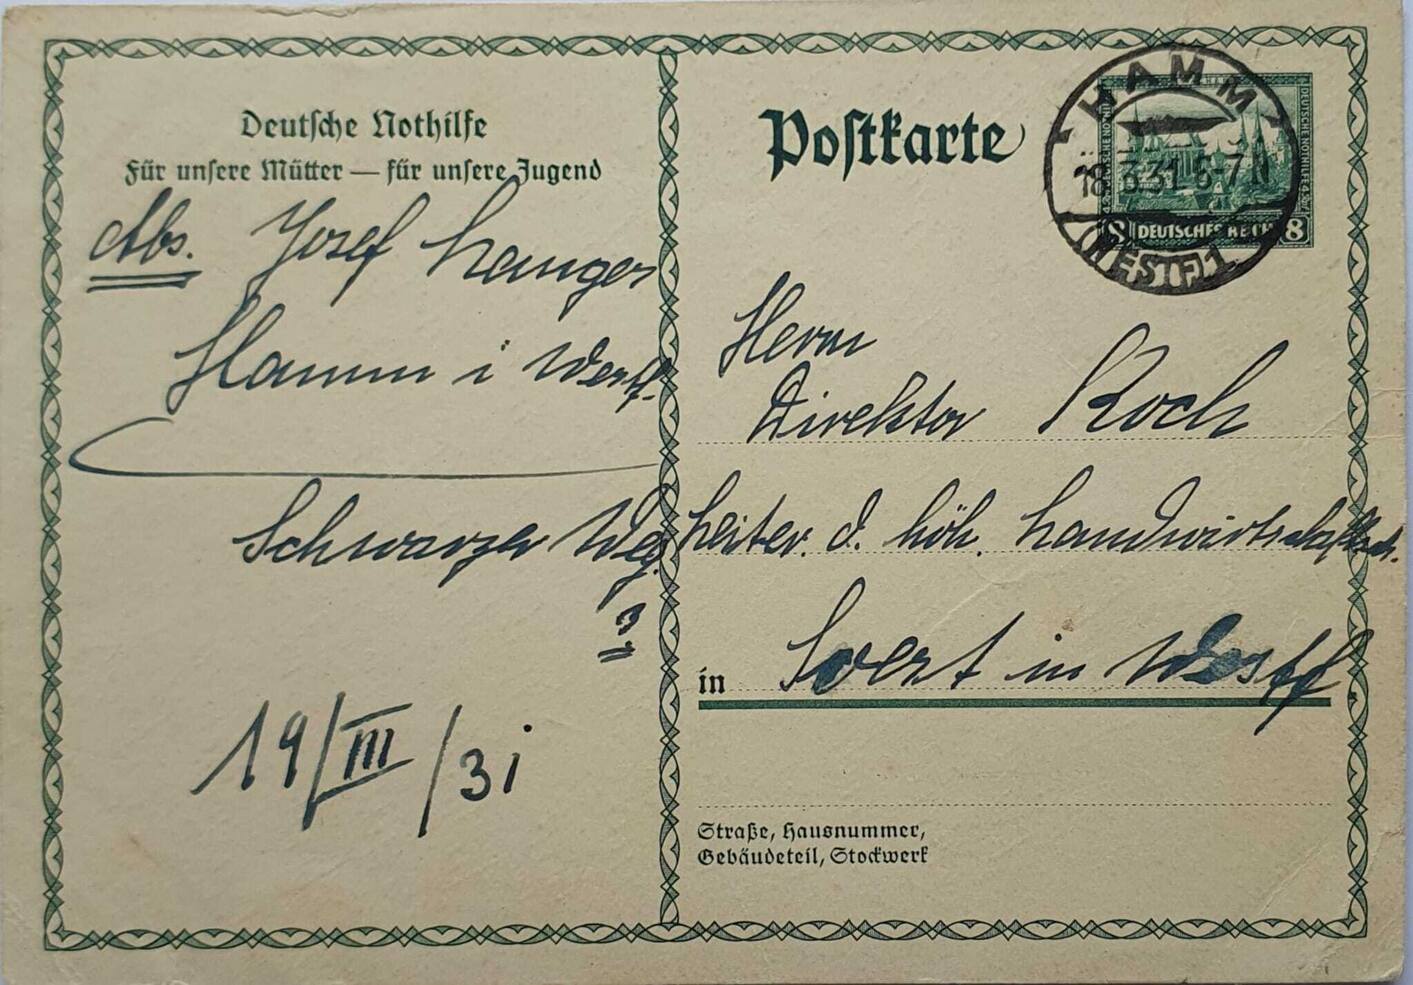 Deutsche Nothilfe
Für unsere Mütter — für unsere Jugend
Abs. Josef Langer
Hamm i Westf.
Schwarzer Weg
3
19/III/31
Postkarte
HAMM
18.3.31. 6-7 N
(WESTF.) 1
DEUTSCHE NOTHILFE
8 DEUTSCHES REICH 8
Herrn
Direktor Koch
Leiter. d. höh. Landwirtschaftssch.
in Soest in Westf
Straße, Hausnummer,
Gebäudeteil, Stockwerk